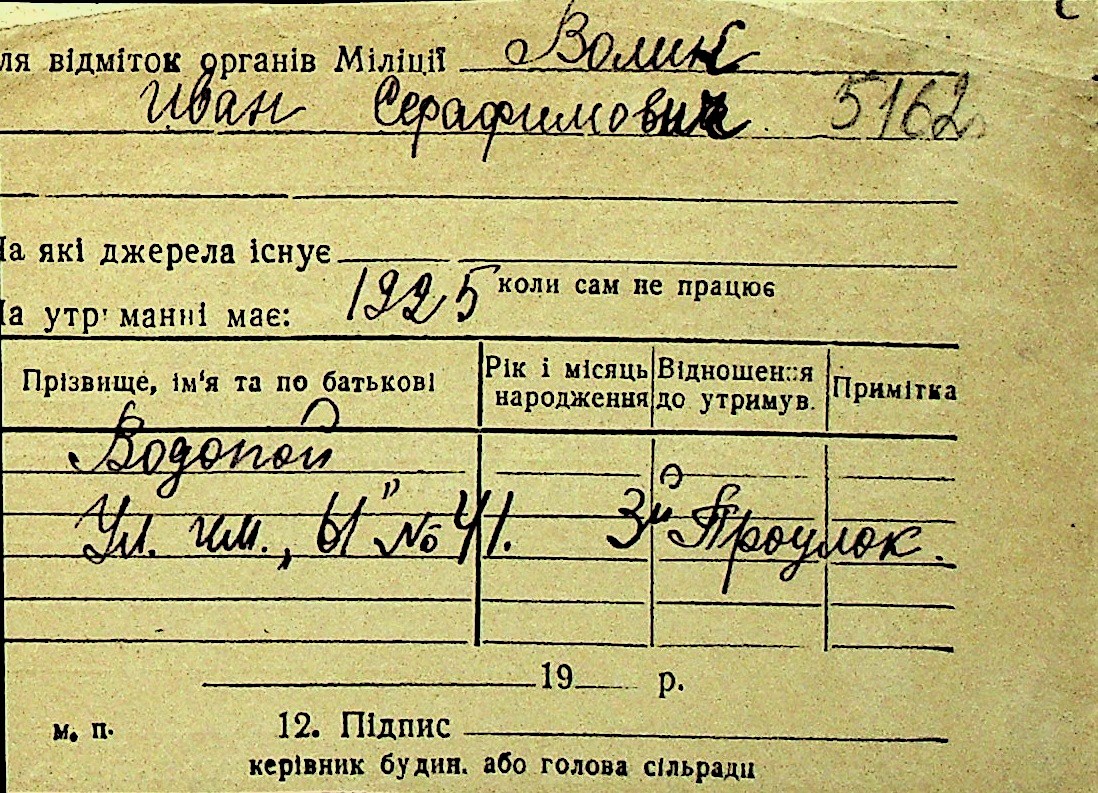 ля відміток органів Міліції Волик
Иван Серафимович 5162
На які джерела існує
1925 коли сам не працює
На утр манні має:
Прізвище, ім'я та по батькові Рік і місяць народження Відношення до утримув. Примітка
Водопой
Ул. им. „Ы" № 41. 3й Проулок.
19 р.
м. п. 12. Підпис
керівник будин. або голова сільради